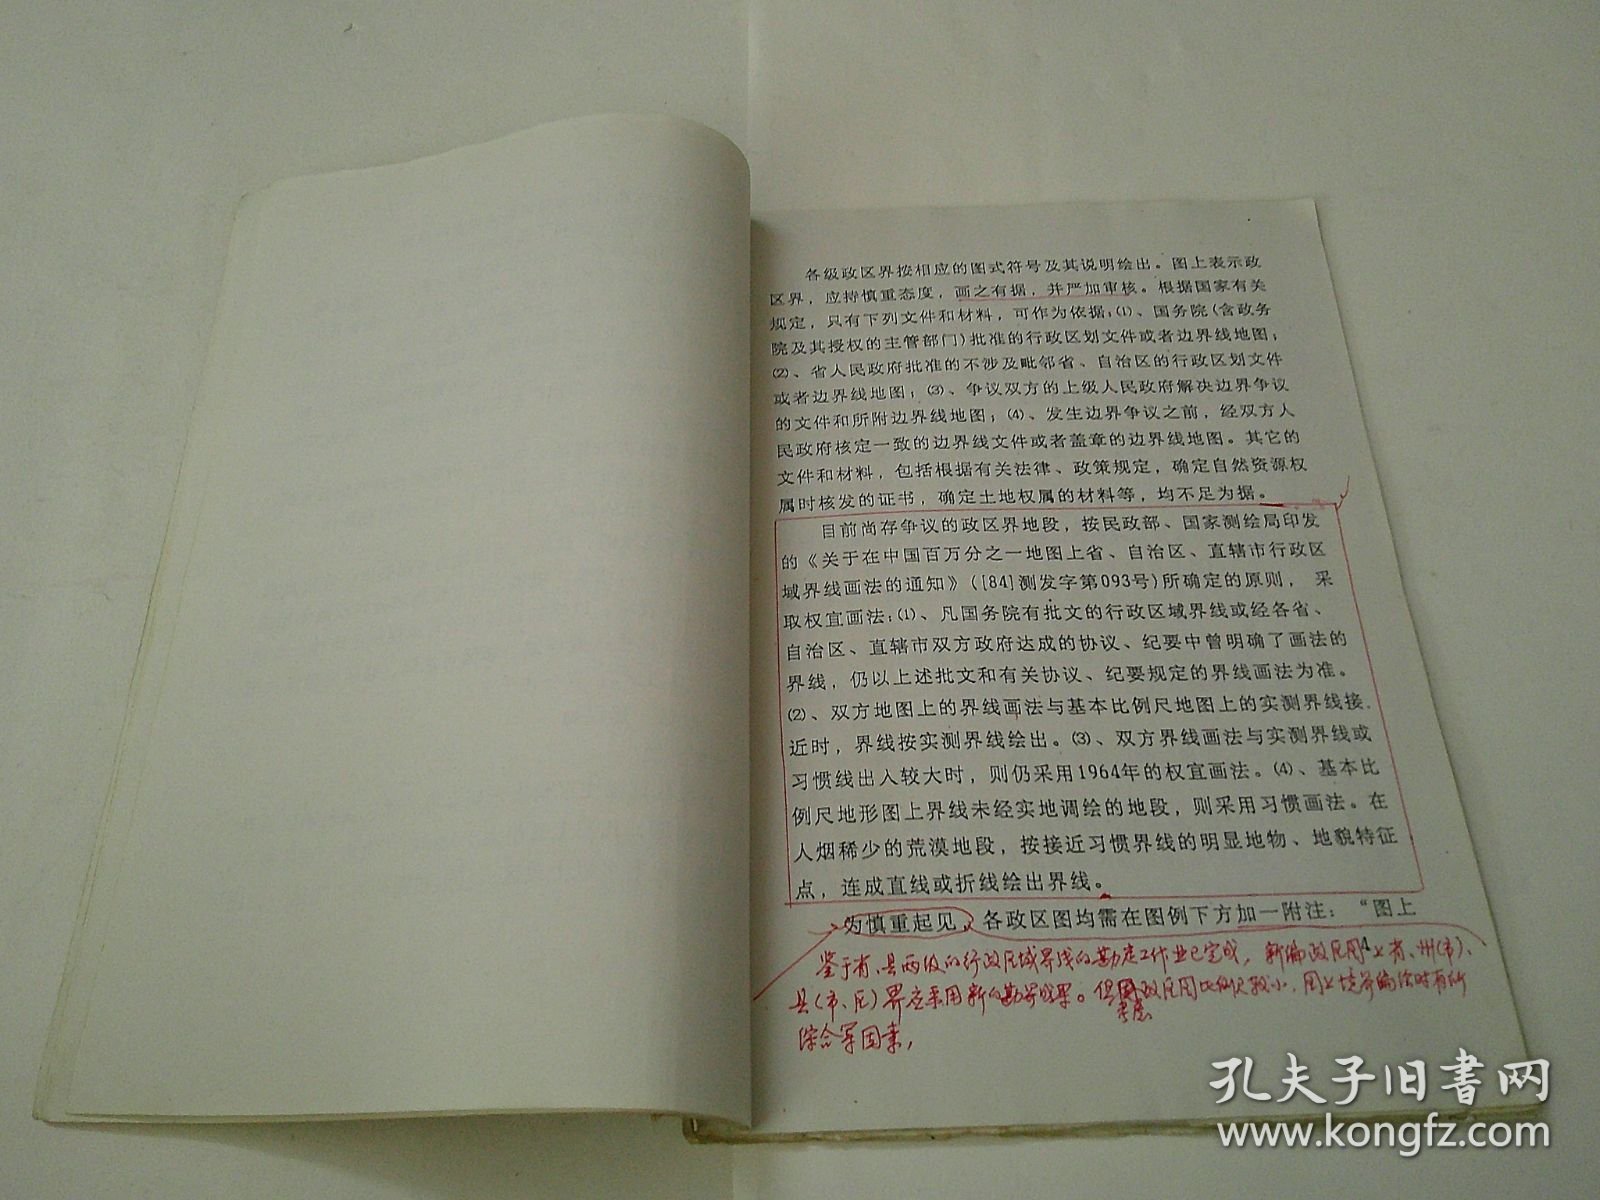 各级政区界按相应的图式符号及其说明绘出。图上表示政
区界，应持慎重态度，画之有据，并严加审核。根据国家有关
规定，只有下列文件和材料，可作为依据：⑴、国务院（含政务
院及其授权的主管部门）批准的行政区划文件或者边界线地图；
⑵、省人民政府批准的不涉及毗邻省、自治区的行政区划文件
或者边界线地图；⑶、争议双方的上级人民政府解决边界争议
的文件和所附边界线地图；⑷、发生边界争议之前，经双方人
民政府核定一致的边界线文件或者盖章的边界线地图。其它的
文件和材料，包括根据有关法律、政策规定，确定自然资源权
属时核发的证书，确定土地权属的材料等，均不足为据。
目前尚存争议的政区界地段，按民政部、国家测绘局印发
的《关于在中国百万分之一地图上省、自治区、直辖市行政区
域界线画法的通知》（[84]测发字第093号）所确定的原则， 采
取权宜画法：⑴、凡国务院有批文的行政区域界线或经各省、
自治区、直辖市双方政府达成的协议、纪要中曾明确了画法的
界线，仍以上述批文和有关协议、纪要规定的界线画法为准。
⑵、双方地图上的界线画法与基本比例尺地图上的实测界线接
近时，界线按实测界线绘出。⑶、双方界线画法与实测界线或
习惯线出入较大时，则仍采用1964年的权宜画法。⑷、基本比
例尺地形图上界线未经实地调绘的地段，则采用习惯画法。在
人烟稀少的荒漠地段，按接近习惯界线的明显地物、地貌特征
点，连成直线或折线绘出界线。
为慎重起见，各政区图均需在图例下方加一附注：“图上
4
鉴于省、县两级的行政区域界线的勘定工作业已完成，新编政区图上省、州(市)、
县(市、区)界应采用新的勘界成果。但考虑政区图比例尺较小，图上境界编绘时有所
综合等因素，
孔夫子旧书网
www.kongfz.com